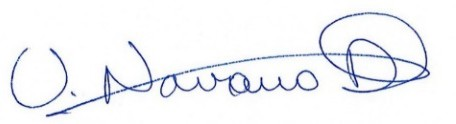 V. Navarro D